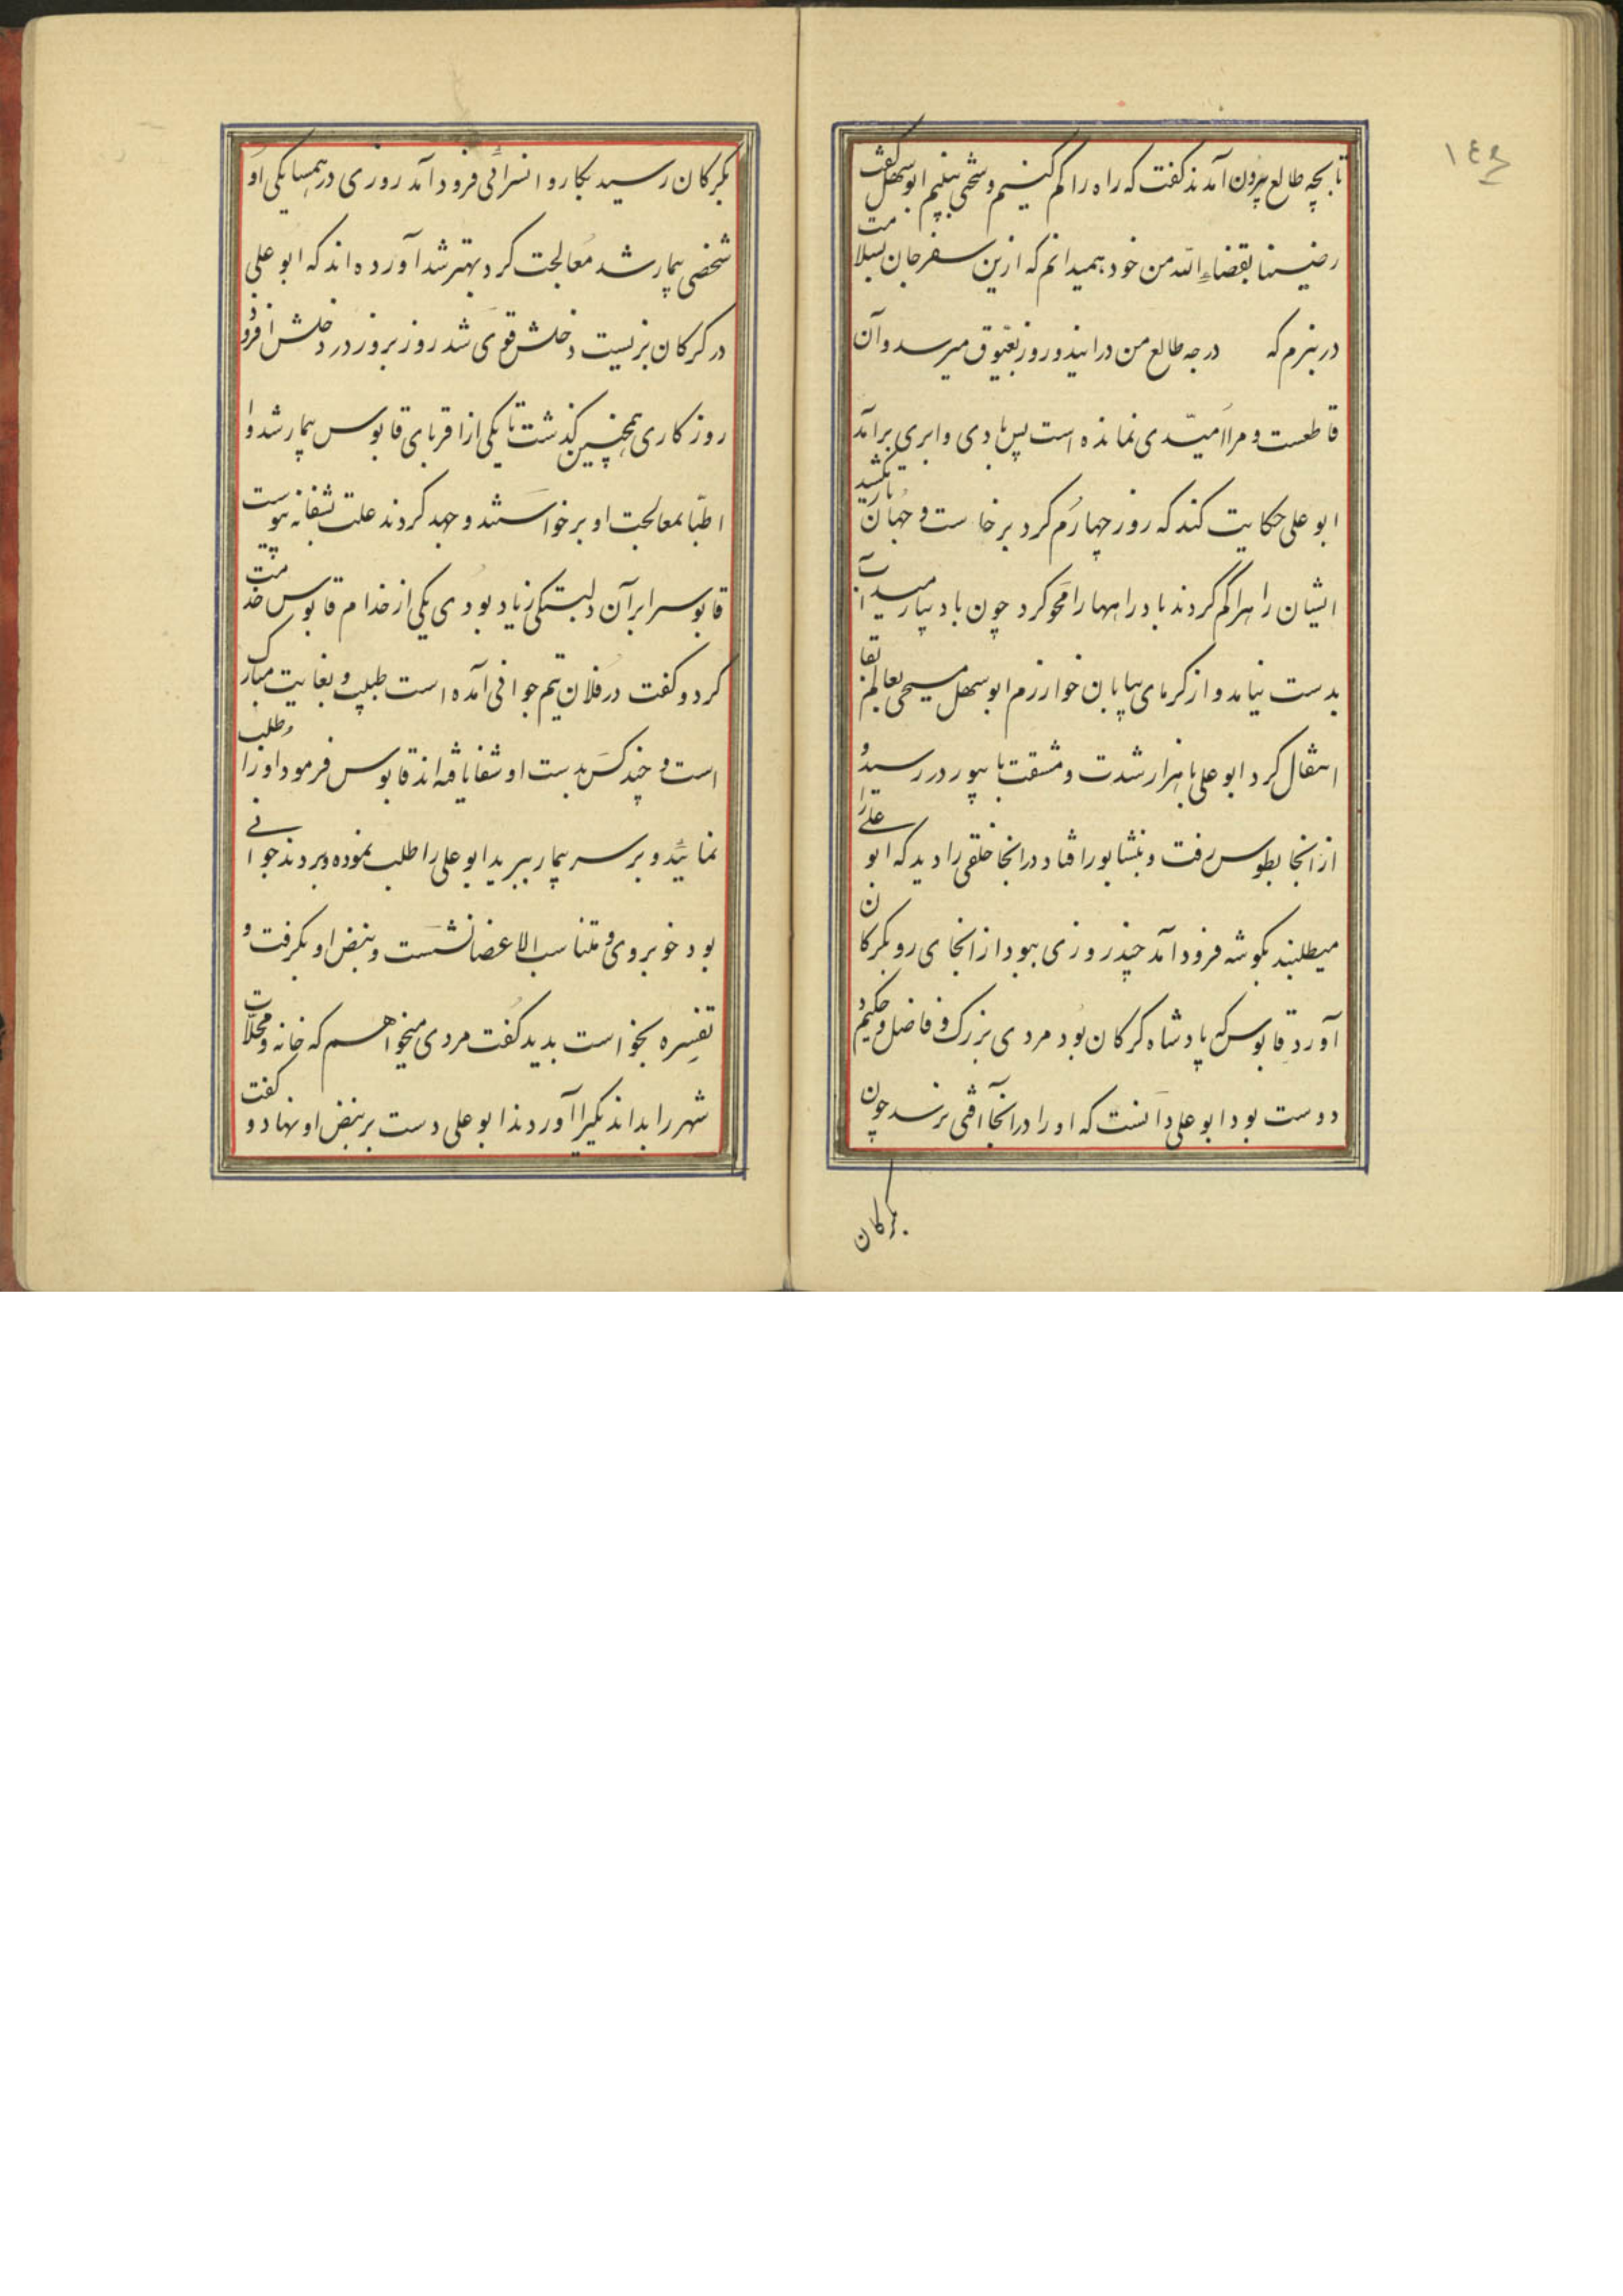 ١٤٩
تا بچه طالع بیرون آمدند کفت که راه را کم کنیم و سختی بینیم ابو سهل کفت
رضینا بقضاء الله من خود همیدانم که ازین سفر جان بسلامت
در نبرم که درجه طالع من در ایندو روز بعیّوق میرسد و آن
قاطعست و مرا امیّدی نمانده است پس بادی و ابری برآمد
ابو علی حکایت کند که روز چهارم کرد برخاست و جهان تاریک شد
ایشان راه را کم کردند باد راهها را محو کرد چون باد بیارمید آب
بدست نیامد و از کرمای بیابان خوارزم ابو سهل مسیحی بعالم بقا
انتقال کرد ابو علی با هزار شدت و مشقت بابیورد در رسید و
از آنجا بطوس رفت و بنشابور افتاد در انجا خلقی را دید که ابو علی را
میطلبند بکوشه فرود آمد چند روزی ببود از انجای رو بکرکان
آورد قابوس که پادشاه کرکان بود مردی بزرک و فاضل و حکیم
دوست بود ابو علی دانست که او را در انجا آفتی نرسد چون
بکرکان
بکرکان رسید بکاروانسرائی فرود آمد روزی در همسایکی او
شخصی بیمار شد معالجت کرد بهتر شد آورده اند که ابو علی
در کرکان بزیست دخلش قوی شد روز بروز در دخلش افزود
روزکاری همچنین کذشت تا یکی از اقربای قابوس بیمار شد و
اطبّا بمعالجت او برخواستند و جهد کردند علت بشفا نه پیوست
قابوس را بر آن دلبستکی زیاد بودی یکی از خدام قابوس خدمت
کرد و کفت در فلان تیم جوانی آمده است طبیب و بغایت مبارک
است و چند کس بدست او شفا یافته اند قابوس فرمود او را طلب
نمائید و بر سر بیمار ببرید ابو علی را طلب نموده و بردند جوانی
بود خوبروی و متناسب الاعضا نشست و بنض او بکرفت و
تفسره بخواست بدید کفت مردی میخواهم که خانه و محلات
شهر را بداند یکیرا آوردند ابو علی دست بر بنض او نهاد و کفت